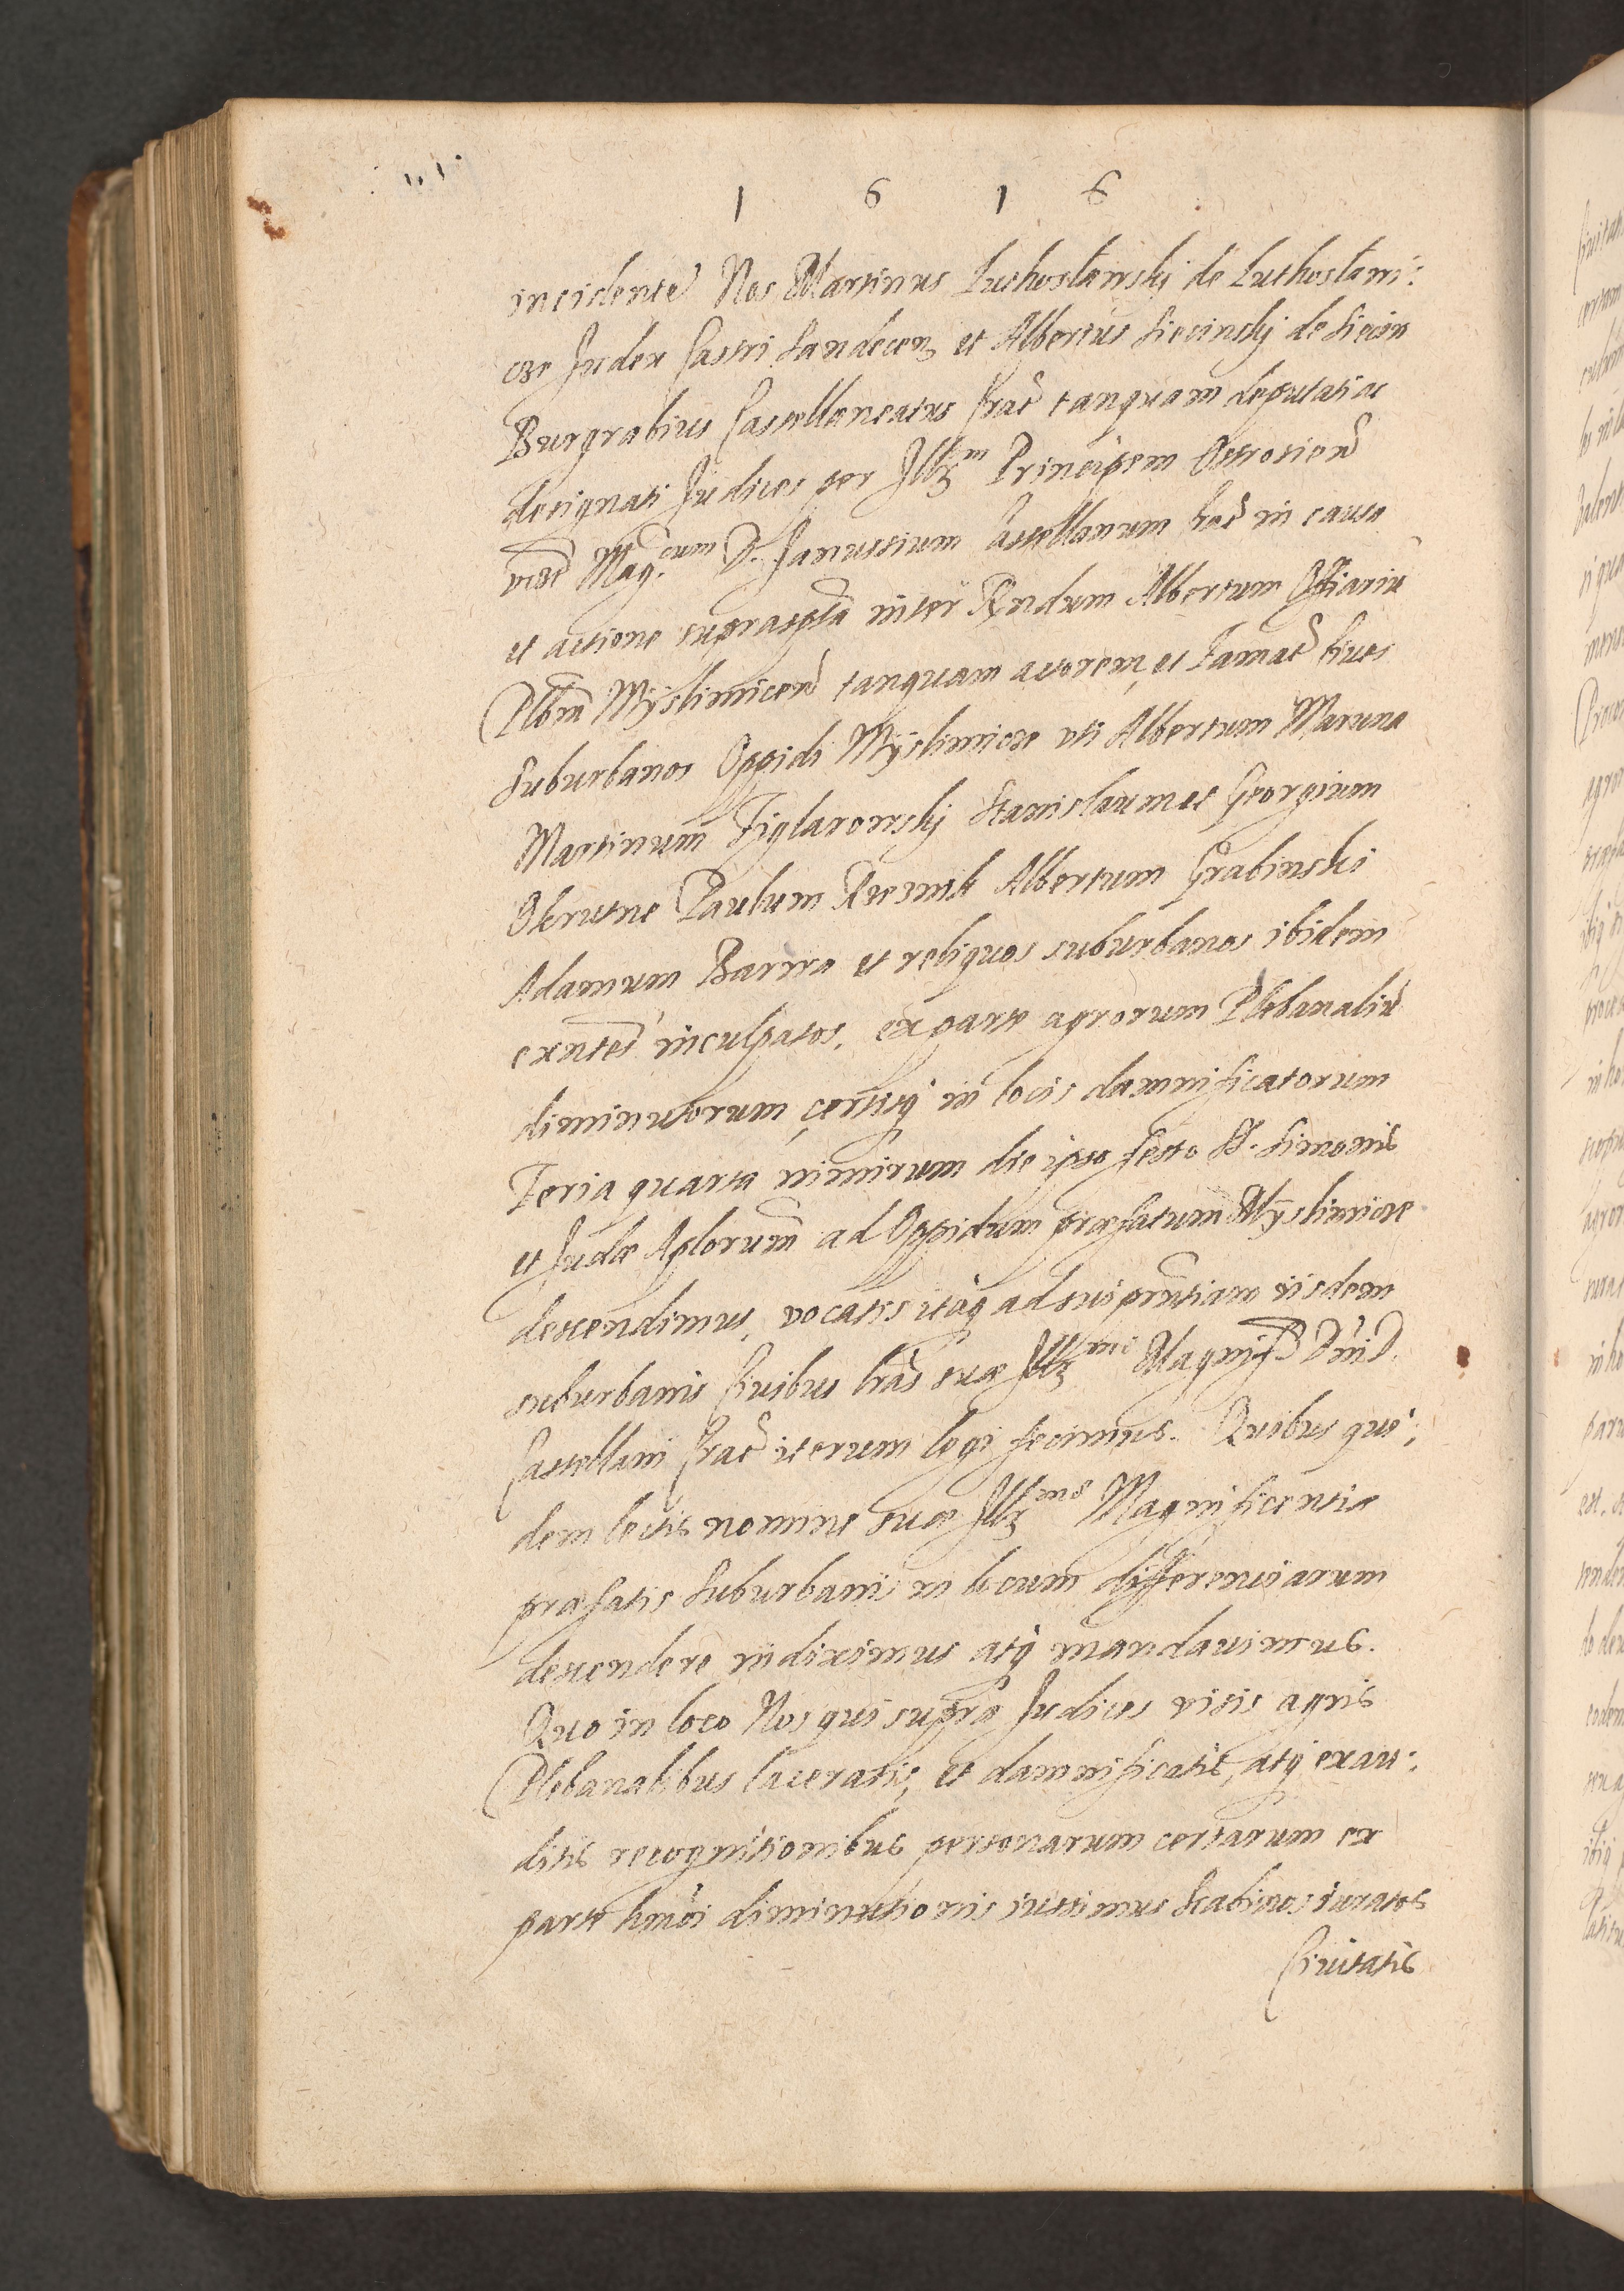 1 6 1 6
incidente Nos Martinus Luthosławskj de Luthosławi:
cze Judex Castri Sandecen et Albertus Siecinskj de Siecin
Burgrabius Castellaneatus Crac tanquam deputati ac
designati Judices per Illm Principem Ostrosien
vide Mag.cum D. Janussium Castellanum Crac in causa
et actione suprascpta inter Rndum Albertum Offariu
Plbm Myslimicen tanquam actorem, et Famat Ciues
Suburbanos Oppidi Myslimicze vti Albertum Maruna
Martinum Figlarowskj Stanislaum et Georgium
Okrutne Paulum Rzeznik Albertum Grabinski
Adamum Barwa et reliquos suburbanos ibidem
exntes inculpatos, ex parte agrorum Plebanaliu
diminutorum, certisq in locis damnificatorum
Feria quarta nimirum die ipso festo St. Simonis
et Judæ Aplorum ad Oppidum præfatum Myslimice
descendimus, vocatis itaq ad sui pntiam iisdem
suburbanis Ciuibus lras suæ Illmæ Magnif Dni D.
Castellani Crac iterum legi fecimus. Quibus qui:
dem lectis nomine suæ Illmæ Magnificentiæ
præfatis Suburbanis in locum differentiarum
descendere indiximus atq mandauimus.
Quo in loco Nos qui supra Judices visis agris
Plebanalibus laceratis, et damnificatis, atq exau:
ditis recognitionibus personarum certarum ex
parte hmoi diminutionis iussimus Scabinos iuratos
Ciuitatis